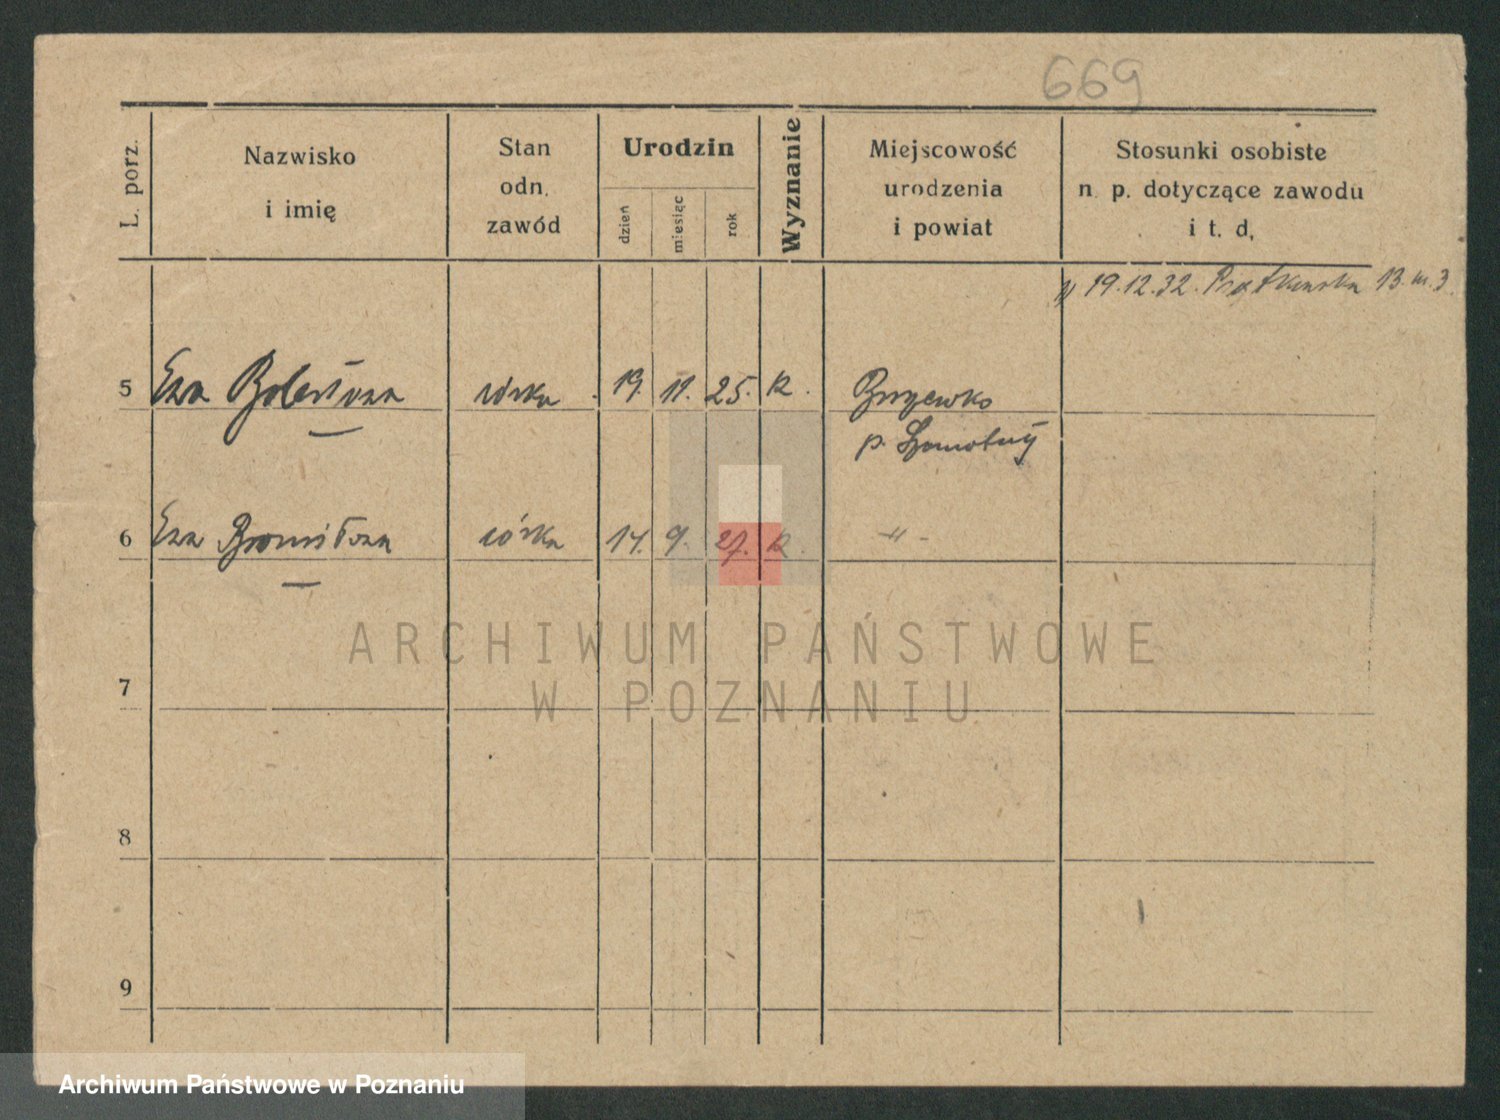 669
L. porz.
Nazwisko
i imię
Stan
odn.
zawód
Urodzin
dzień
miesiąc
rok
Wyznanie
Miejscowość
urodzenia
i powiat
Stosunki osobiste
n. p. dotyczące zawodu
i t. d,
19.12.32. Piątkowska 13 m. 3.
5 córka 19. 11. 25. k.
6 Bronisława córka 14. 9. 27. k. -"-
7
8
9
ARCHIWUM PAŃSTWOWE
W POZNANIU
Archiwum Państwowe w Poznaniu